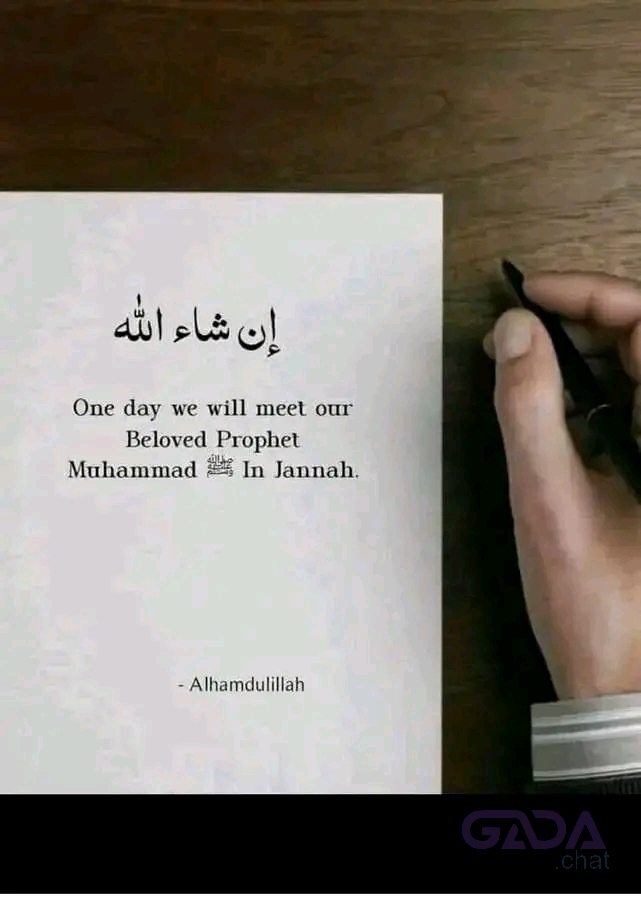 إن شاء الله
One day we will meet our
Beloved Prophet
Muhammad ﷺ In Jannah.
- Alhamdulillah
GADA
.chat